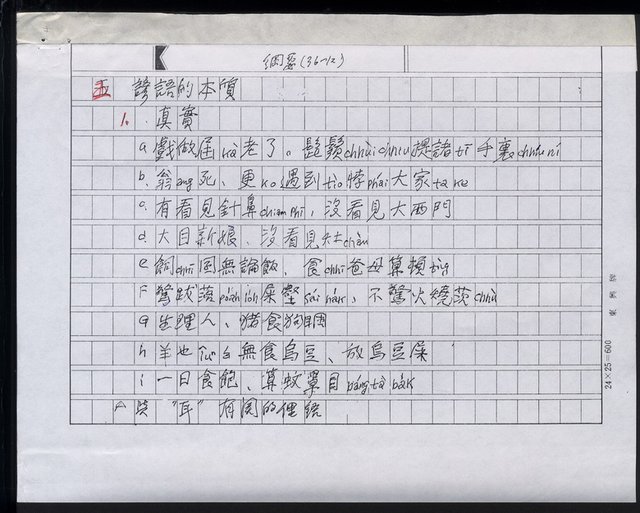 綱要(36-12)
五 諺語的本質
1. 真實
a. 戲做屆kà老了。髭鬚chhùi chhiu提諸tī手裏chhiú ní
b. 翁ang死、更ko遇到tio̍h悖pháiⁿ大家ta ke
c. 有看見針鼻chiam phīⁿ，沒看見大西門
d. 大目新娘、沒看見灶chàu
e. 飼chhī囝無論飯、食chhī爸母算頓tǹg
F 驚跋落poa̍h lo̍h屎壑sái ha̍k、不驚火燒茨chhù
G 生理人、豬食狗睏
h 羊也iūⁿ ā無食烏豆、放烏豆屎
i 一日食飽、算蚊罩目báng tà ba̍k
A 與"耳"有関的俚諺
24×25=600